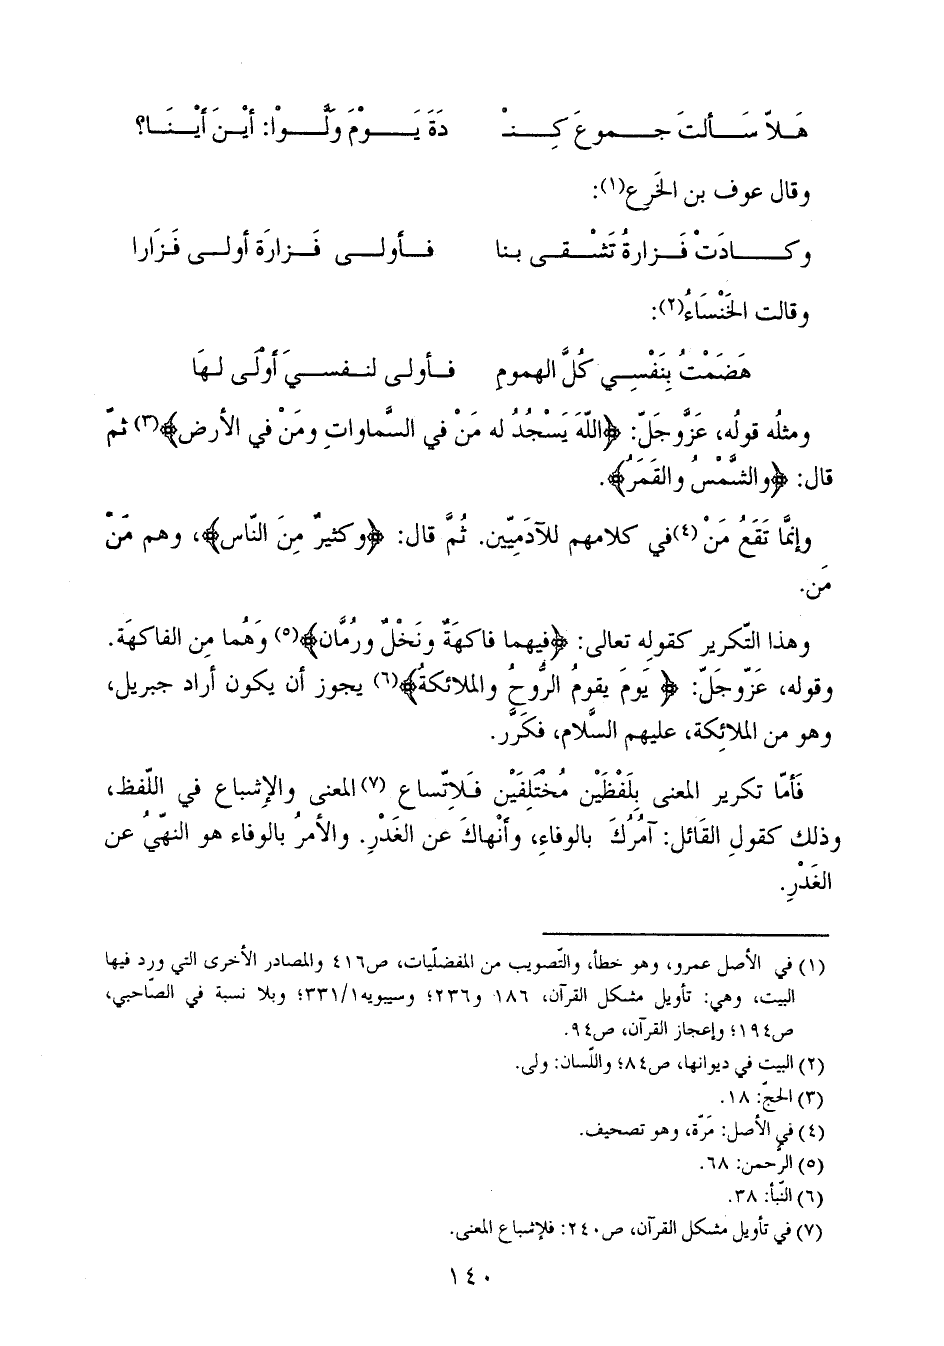 هَلاَّ سَـألتَ جـموعَ كِنـدْ دَةَ يَـوْمَ وَلَّـوْا: أيْـنَ أيْـنَـا؟
وقال عوف بن الخَرِع(١):
وكـادَتْ فَـزارةُ تَشْـقـى بـنا فـأولـى فَـزارَة أولـى فَـزَارا
وقالت الخَنْسَاءُ(٢):
هَضَمْتُ بِنَفْسِي كُلَّ الهمومِ فـأولى لنـفسـيَ أَوْلَى لـهَا
ومثلُه قولُه، عَزَّوجَلّ: ﴿اللّهَ يَسْجُدُ له مَنْ في السَّماواتِ ومَنْ في الأرض﴾(٣) ثمّ
قال: ﴿والشَّمْسُ والقَمَرُ﴾.
وإنمَّا تَقَعُ مَنْ (٤)في كلامهم للآدَمِيّين. ثُمَّ قال: ﴿وكثيرٌ مِنَ النّاس﴾، وهم مَنْ
مَن.
وهذا التّكرير كقولِه تعالى: ﴿فيهما فاكهَةٌ ونَخْلٌ ورُمَّان﴾(٥) وَهُما مِن الفاكهَة.
وقوله، عَزّوجَلّ: ﴿ يَومَ يقومُ الرُّوحُ والملائكةُ﴾(٦) يجوز أن يكون أراد جبريل،
وهو من الملائِكة، عليهم السَّلام، فكَرَّر.
فَأمّا تكرير المعنى بِلَفْظَيْن مُخْتَلِفَيْن فَلاِتّساع (٧)المعنى والإشباع في اللّفظ،
وذلك كقولِ القَائل: آمُرُكَ بالوفاءِ، وأنْهاكَ عن الغَدْرِ. والأمرُ بالوفاء هو النهّيُ عن
الغَدْرِ.
(١) في الأصل عمرو، وهو خطأ، والتّصويب من المفضلّيات، ص٤١٦ والمصادر الأخرى التي ورد فيها
البيت، وهي: تأويل مشكل القرآن، ١٨٦ و٢٣٦؛ وسيبويه٣٣١/١؛ وبلا نسبة في الصّاحبي،
ص١٩٤؛ وإعجاز القرآن، ص٩٤.
(٢) البيت في ديوانها، ص٨٤؛ واللّسان: ولى.
(٣) الحجّ: ١٨.
(٤) في الأصل: مَرّة، وهو تصحيف.
(٥) الرّحمن: ٦٨.
(٦) النّبأ: ٣٨.
(٧) في تأويل مشكل القرآن، ص٢٤٠: فلإشباع المعنى.
١٤٠